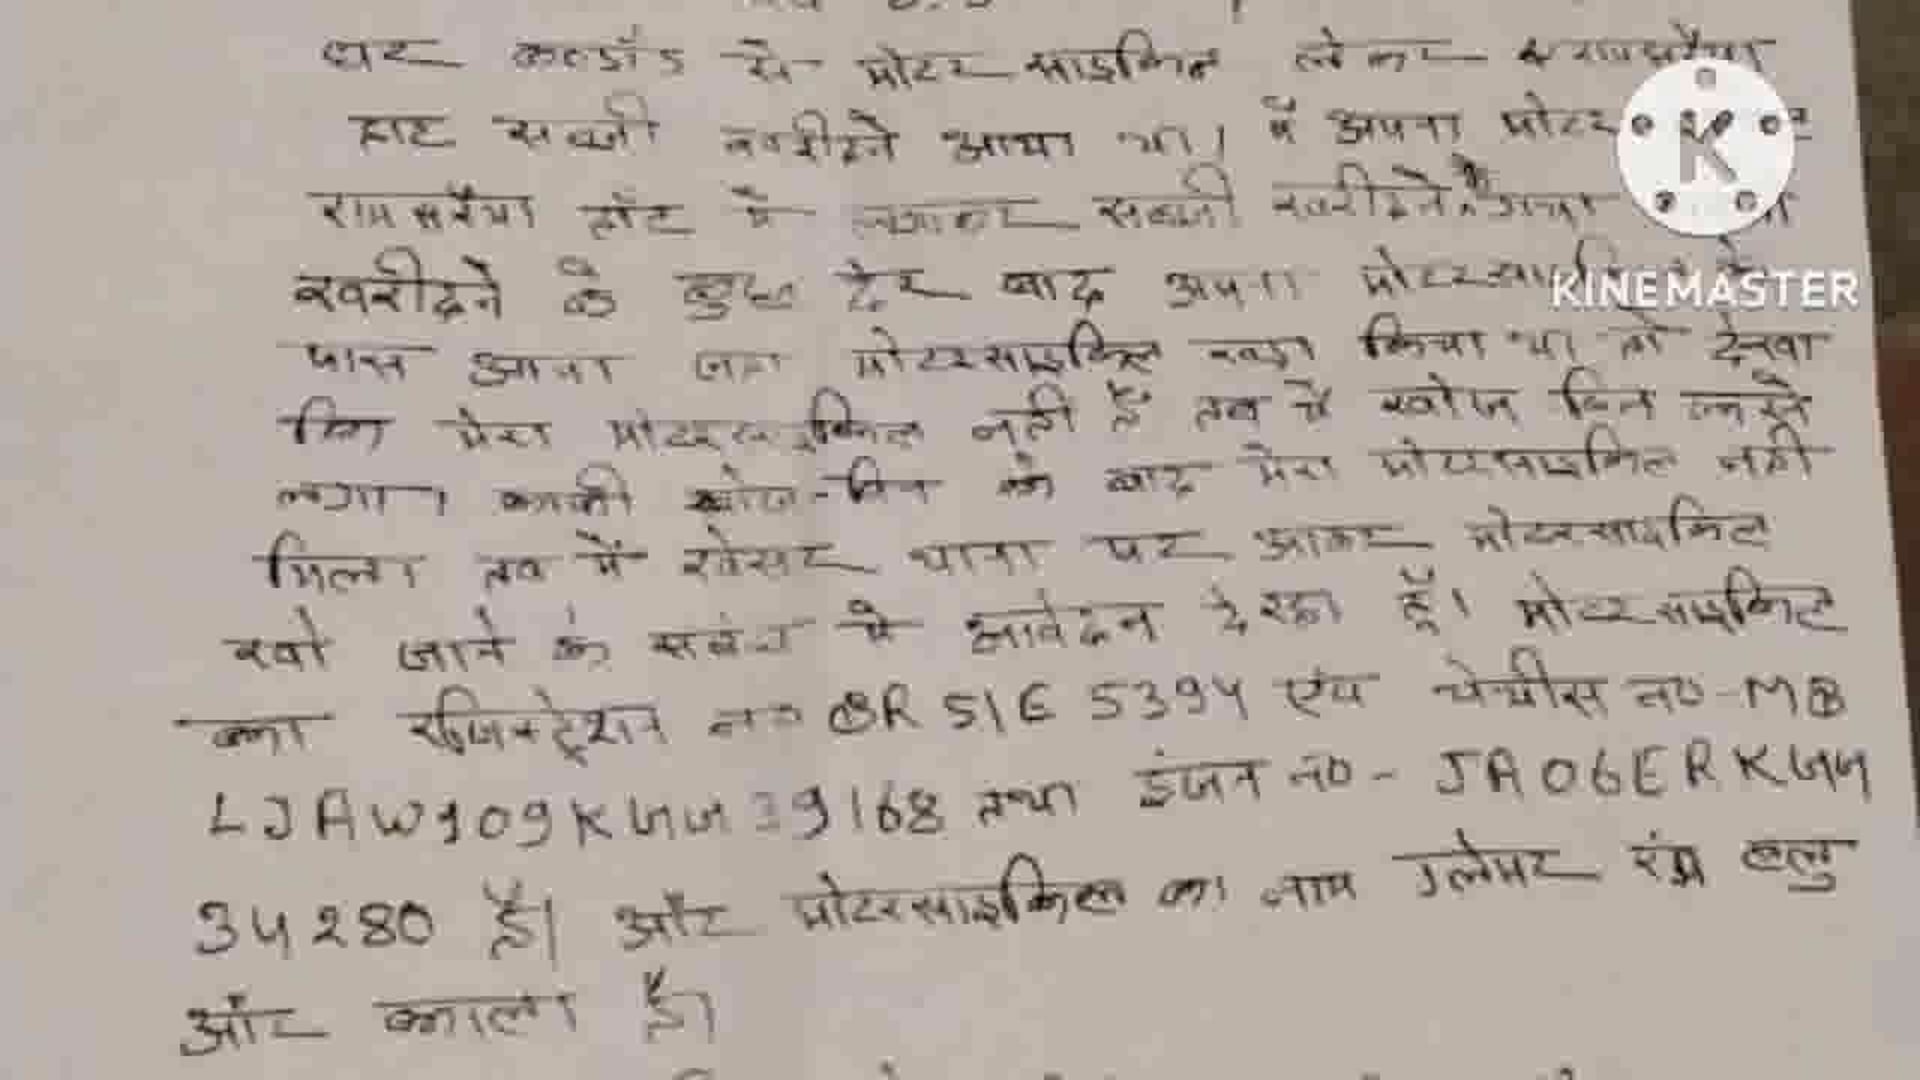 घर कल्डॉड से मोटरसाइकिल लेकर
हाट सब्जी खरीदने आया था। मैं अपना मोटर
रामसरैया हॉट में लगाकर सब्जी खरीदने के गया
खरीदने के कुछ देर बाद अपना मोटरसाइकिल के
पास आया जहा मोटरसाइकिल खड़ा किया था तो देखा
कि मेरा मोटरसाइकिल नही है तब मैं खोज बिन करने
लगा। काफी खोज-बिन के बाद मेरा मोटरसाइकिल नही
मिला तब मैं खेसर थाना पर आकर मोटरसाइकिल
खो जाने के सबंध मे आवेदन दे रहा हूँ। मोटरसाइकिल
का रजिस्ट्रेशन न० BR 51E 5394 एंव चेचीस न०-MB
LJAW109K 39168 तथा इंजन न०- JA06ERK
34280 है। और मोटरसाइकिल का नाम ग्लेमर रंग ब्लु
और काला है।
K
KINEMASTER